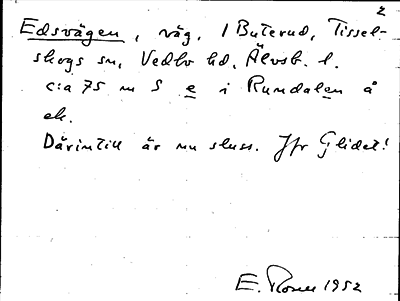 2
Edsvägen, väg, 1 Buterud, Tissel-
skogs sn, Vedbo hd, Älvsb. l.
c:a 75 m S e i Rundalen å
ek.
Därintill är nu sluss. Jfr Glidet!
E. Rosen 1952